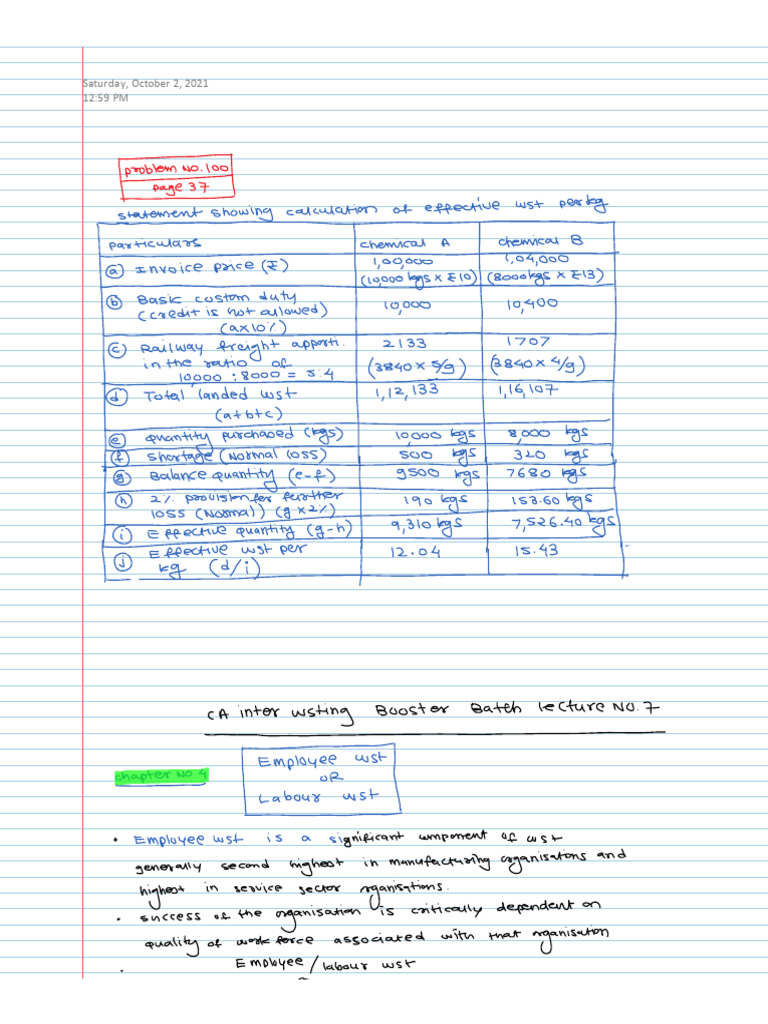 Saturday, October 2, 2021
12:59 PM
problem No.100
page 37
statement showing calculation of effective cost per kg
particulars chemical A chemical B
(a) Invoice price (₹) 1,00,000 1,04,000
(10,000 kgs x ₹10) (8000 kgs x ₹13)
(b) Basic custom duty
(credit is not allowed) 10,000 10,400
(a x 10%)
(c) Railway freight apporti. 2133 1707
in the ratio of (3840 x 5/9) (3840 x 4/9)
10,000 : 8000 = 5:4
(d) Total landed cost 1,12,133 1,16,107
(a+b+c)
(e) quantity purchased (kgs) 10,000 kgs 8,000 kgs
(f) shortage (Normal loss) 500 kgs 320 kgs
(g) Balance quantity (e-f) 9500 kgs 7680 kgs
(h) 2% provision for further 190 kgs 153.60 kgs
loss (Normal) (g x 2%)
(i) Effective quantity (g-h) 9,310 kgs 7,526.40 kgs
(j) Effective cost per 12.04 15.43
kg (d/i)
CA inter costing Booster Batch lecture NO.7
chapter No.4
Employee cost
OR
Labour cost
• Employee cost is a significant component of cost
generally second highest in manufacturing organisations and
highest in service sector organisations.
• success of the organisation is critically dependent on
quality of work force associated with that organisation
• Employee / labour cost